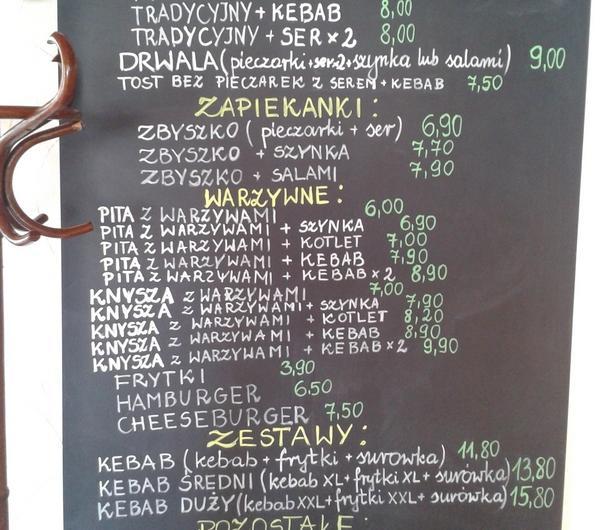 TRADYCYJNY + KEBAB 8,00
TRADYCYJNY + SER x 2 8,00
DRWALA (pieczarki+ser×2+szynka lub salami) 9,00
TOST BEZ PIECZAREK Z SEREM + KEBAB 7,50
ZAPIEKANKI:
ZBYSZKO (pieczarki + ser) 6,90
ZBYSZKO + SZYNKA 7,70
ZBYSZKO + SALAMI 7,90
WARZYWNE:
PITA Z WARZYWAMI 6,00
PITA Z WARZYWAMI + SZYNKA 6,90
PITA Z WARZYWAMI + KOTLET 7,00
PITA Z WARZYWAMI + KEBAB 7,90
PITA Z WARZYWAMI + KEBAB x 2 8,90
KNYSZA Z WARZYWAMI 7,00
KNYSZA Z WARZYWAMI + SZYNKA 7,90
KNYSZA Z WARZYWAMI + KOTLET 8,20
KNYSZA Z WARZYWAMI + KEBAB 8,90
KNYSZA Z WARZYWAMI + KEBAB x 2 9,90
FRYTKI 3,90
HAMBURGER 6.50
CHEESEBURGER 7,50
ZESTAWY:
KEBAB (kebab + frytki + surówka) 11,80
KEBAB ŚREDNI (kebab XL + frytki XL + surówka) 13,80
KEBAB DUŻY (kebab XXL + frytki XXL + surówka) 15,80
POZOSTAŁE: